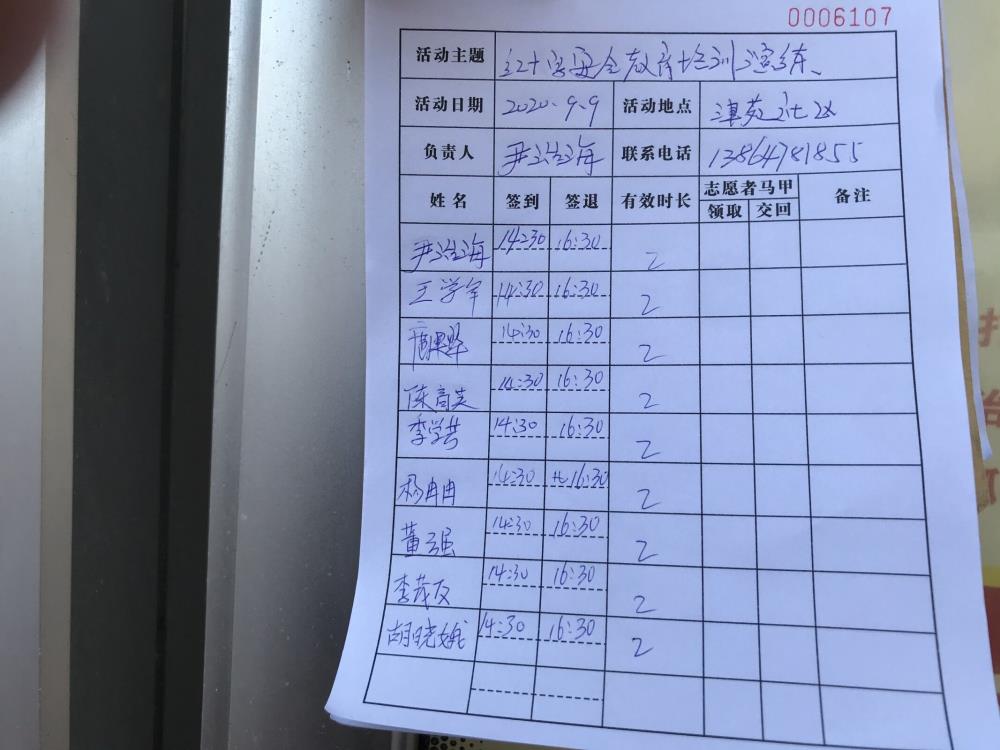 0006107
活动主题 红十字安全教育培训演练、
活动日期 2020.9.9 活动地点 潭苑社区
负责人 尹治海 联系电话 13864781855
姓名 签到 签退 有效时长 志愿者马甲 备注
领取 交回
尹治海 14:30 16:30 2
王学军 14:30 16:30 2
14:30 16:30 2
陈高英 14:30 16:30 2
李学芸 14:30 16:30 2
杨冉冉 14:30 16:30 2
董强 14:30 16:30 2
李茂友 14:30 16:30 2
胡晓娥 14:30 16:30 2